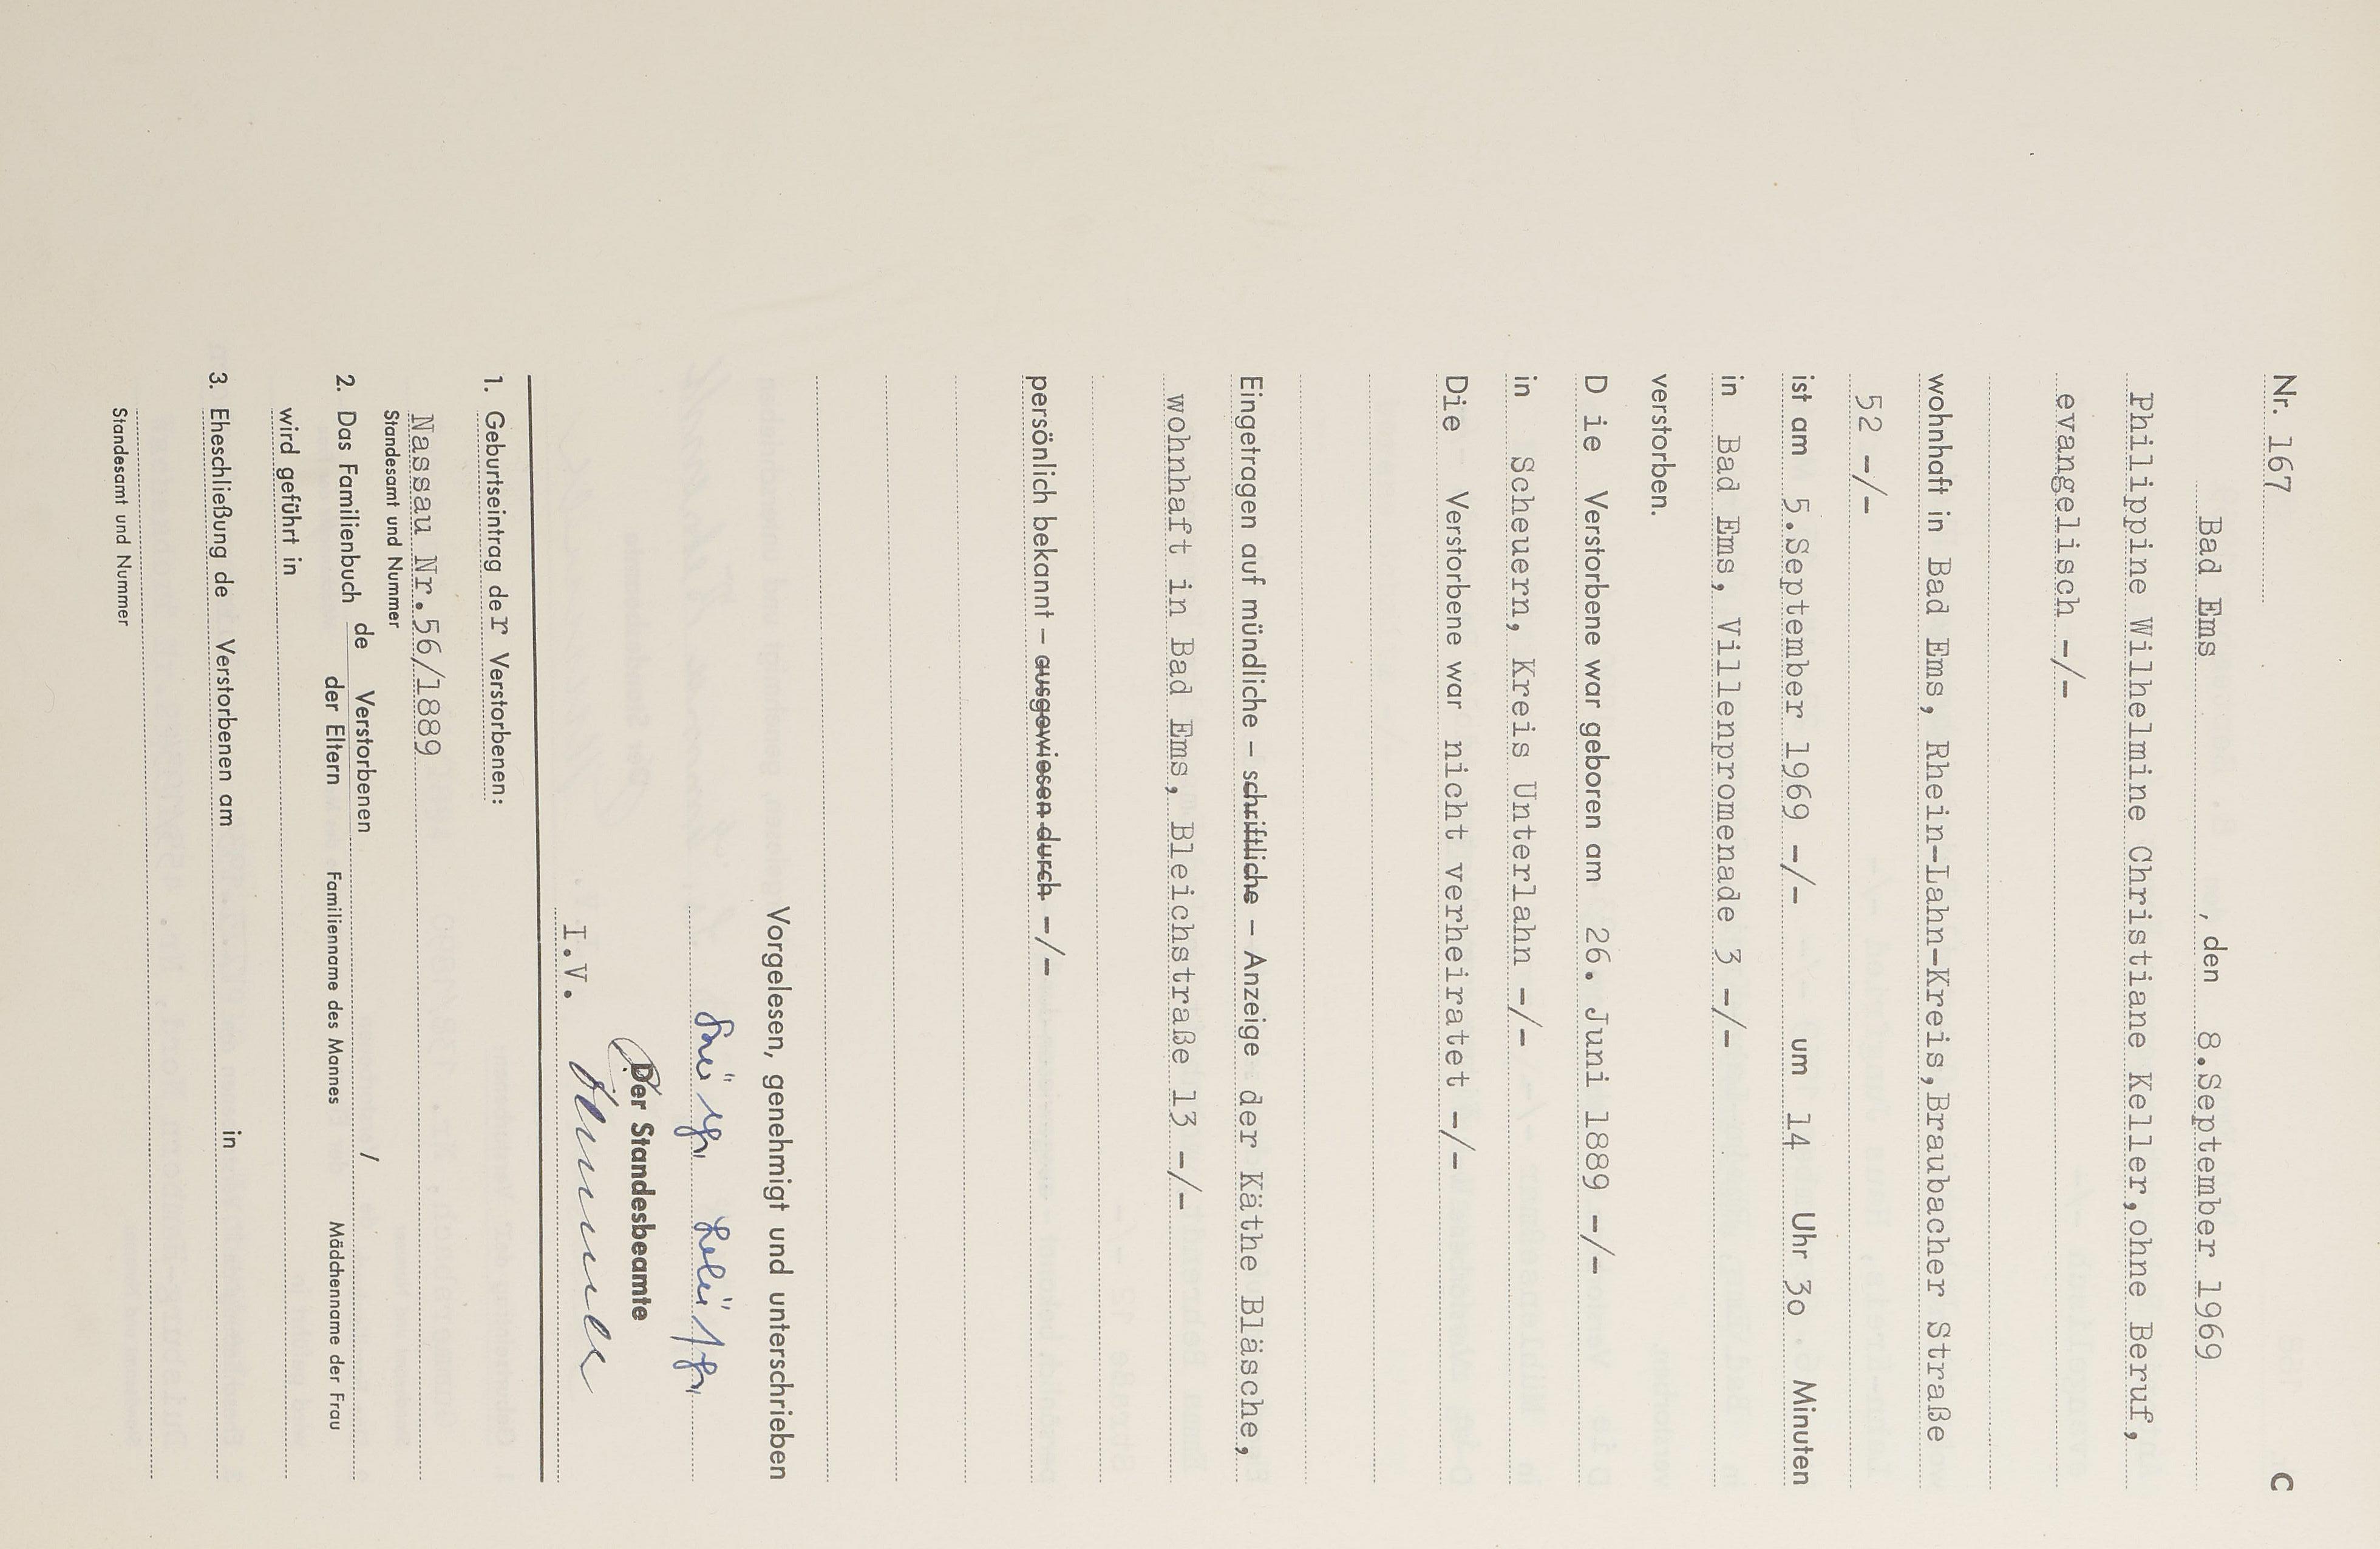 Nr. 167 C
Bad Ems , den 8.September 1969
Philippine Wilhelmine Christiane Keller,ohne Beruf,
evangelisch -/-
wohnhaft in Bad Ems, Rhein-Lahn-Kreis,Braubacher Straße
52 -/-
ist am 5.September 1969 -/- um 14 Uhr 3o Minuten
in Bad Ems, Villenpromenade 3 -/-
verstorben.
D ie Verstorbene war geboren am 26. Juni 1889 -/-
in Scheuern, Kreis Unterlahn -/-
Die Verstorbene war nicht verheiratet -/-
Eingetragen auf mündliche – schriftliche – Anzeige der Käthe Bläsche,
wohnhaft in Bad Ems, Bleichstraße 13 -/-
persönlich bekannt – ausgewiesen durch -/-
Vorgelesen, genehmigt und unterschrieben
Der Standesbeamte
I.V.
1. Geburtseintrag der Verstorbenen:
Nassau Nr.56/1889
Standesamt und Nummer
2. Das Familienbuch de Verstorbenen /
der Eltern Familienname des Mannes Mädchenname der Frau
wird geführt in
3. Eheschließung de Verstorbenen am in
Standesamt und Nummer